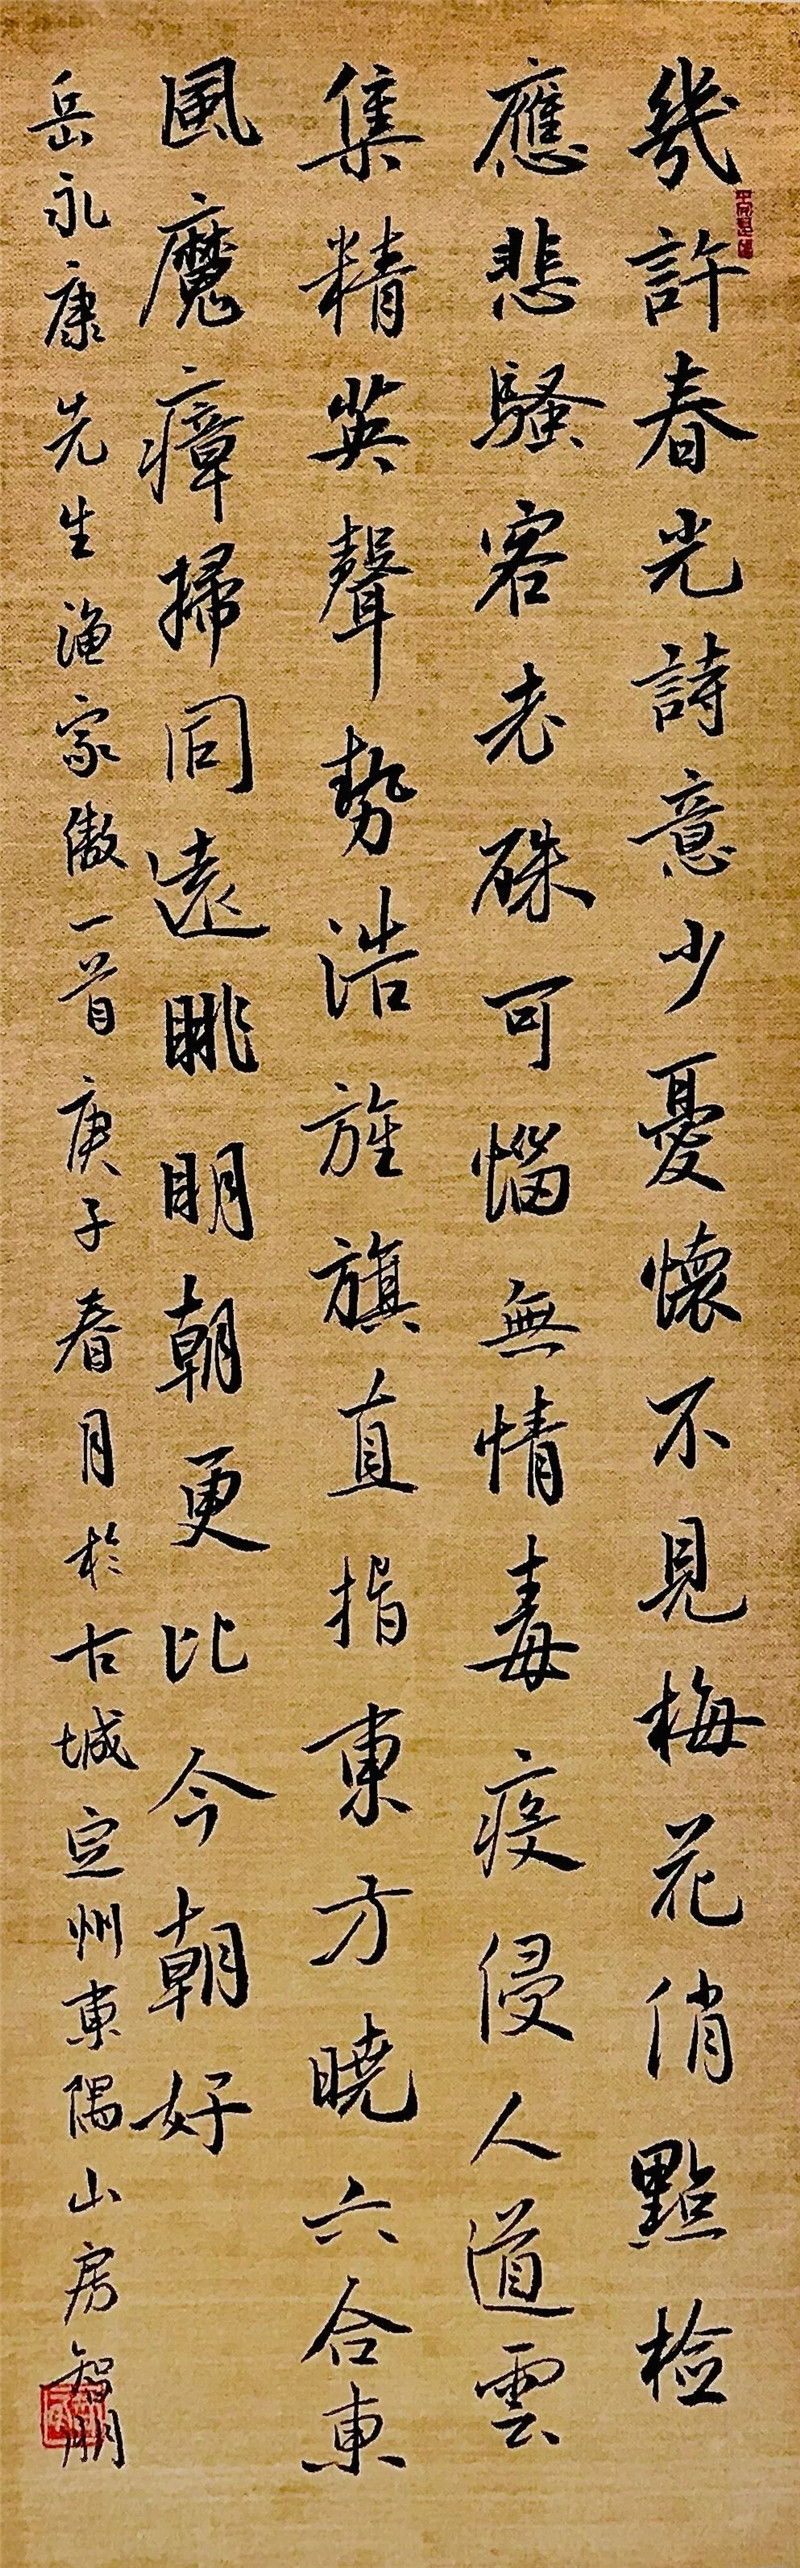 幾許春光詩意少憂懷不見梅花俏點檢
應悲騷客老硃可惱無情毒疫侵人道雲
集精英聲勢浩旌旗直指東方曉六合東
風魔瘴掃同遠眺明朝更比今朝好
岳永康先生漁家傲一首庚子春月於古城定州東隅山房智朋